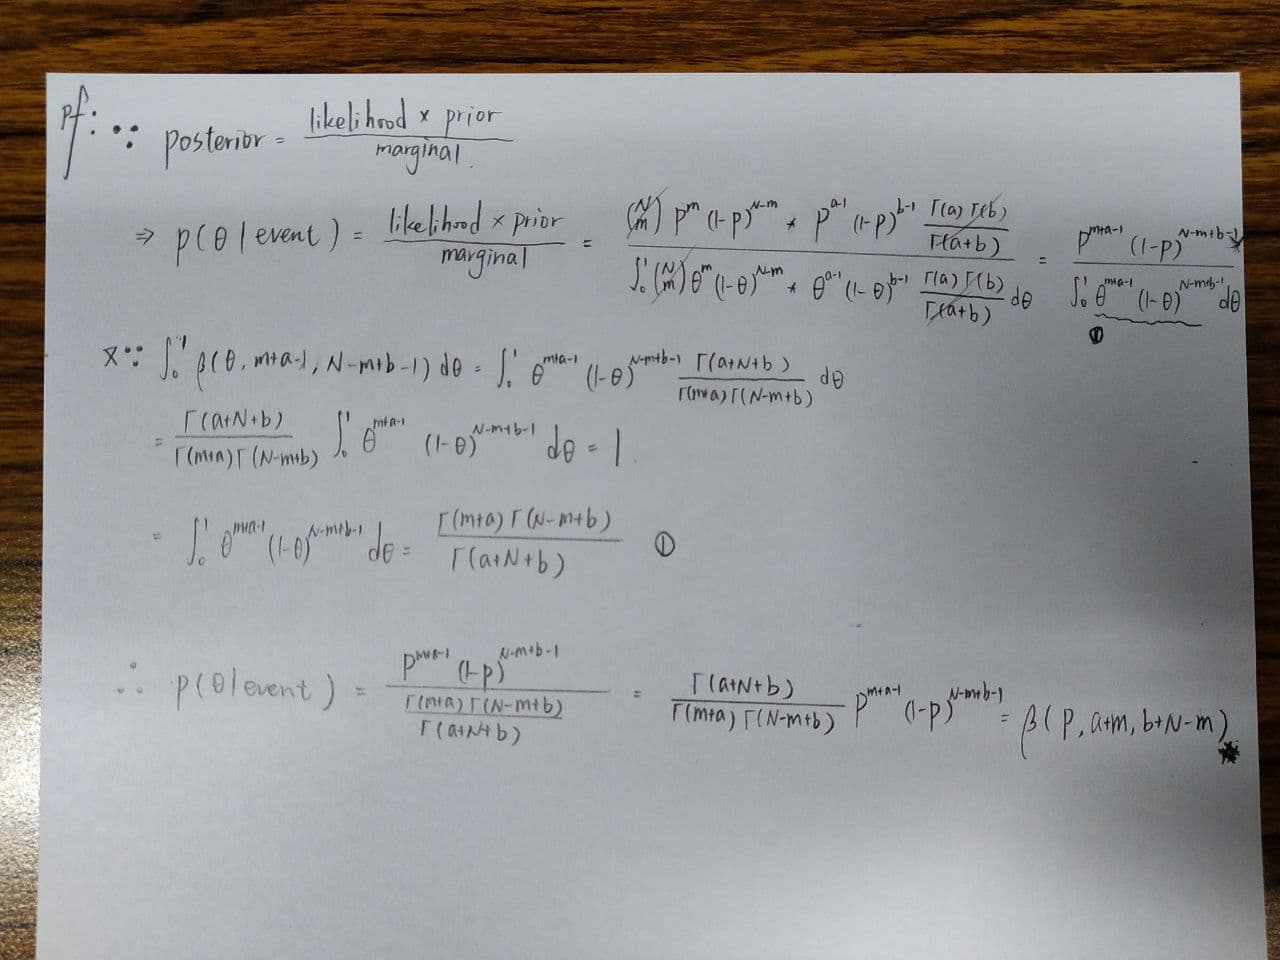 pf: ∵ posterior = (likelihood × prior) / marginal.
⇒ p(θ | event) = (likelihood × prior) / marginal = [(N m) p^m (1-p)^(N-m) * p^(a-1) (1-p)^(b-1) Γ(a)Γ(b) / Γ(a+b)] / [∫₀¹ (N m) θ^m (1-θ)^(N-m) * θ^(a-1) (1-θ)^(b-1) Γ(a)Γ(b) / Γ(a+b) dθ] = [p^(m+a-1) (1-p)^(N-m+b-1)] / [∫₀¹ θ^(m+a-1) (1-θ)^(N-m+b-1) dθ]
①
X∵ ∫₀¹ β(θ, m+a-1, N-m+b-1) dθ = ∫₀¹ θ^(m+a-1) (1-θ)^(N-m+b-1) Γ(a+N+b) / Γ(m+a)Γ(N-m+b) dθ
= Γ(a+N+b) / Γ(m+a)Γ(N-m+b) ∫₀¹ θ^(m+a-1) (1-θ)^(N-m+b-1) dθ = 1
= ∫₀¹ θ^(m+a-1) (1-θ)^(N-m+b-1) dθ = Γ(m+a)Γ(N-m+b) / Γ(a+N+b) ①
∴ p(θ|event) = [p^(m+a-1) (1-p)^(N-m+b-1)] / [Γ(m+a)Γ(N-m+b) / Γ(a+N+b)] = Γ(a+N+b) / Γ(m+a)Γ(N-m+b) p^(m+a-1) (1-p)^(N-m+b-1) = β(p, a+m, b+N-m)